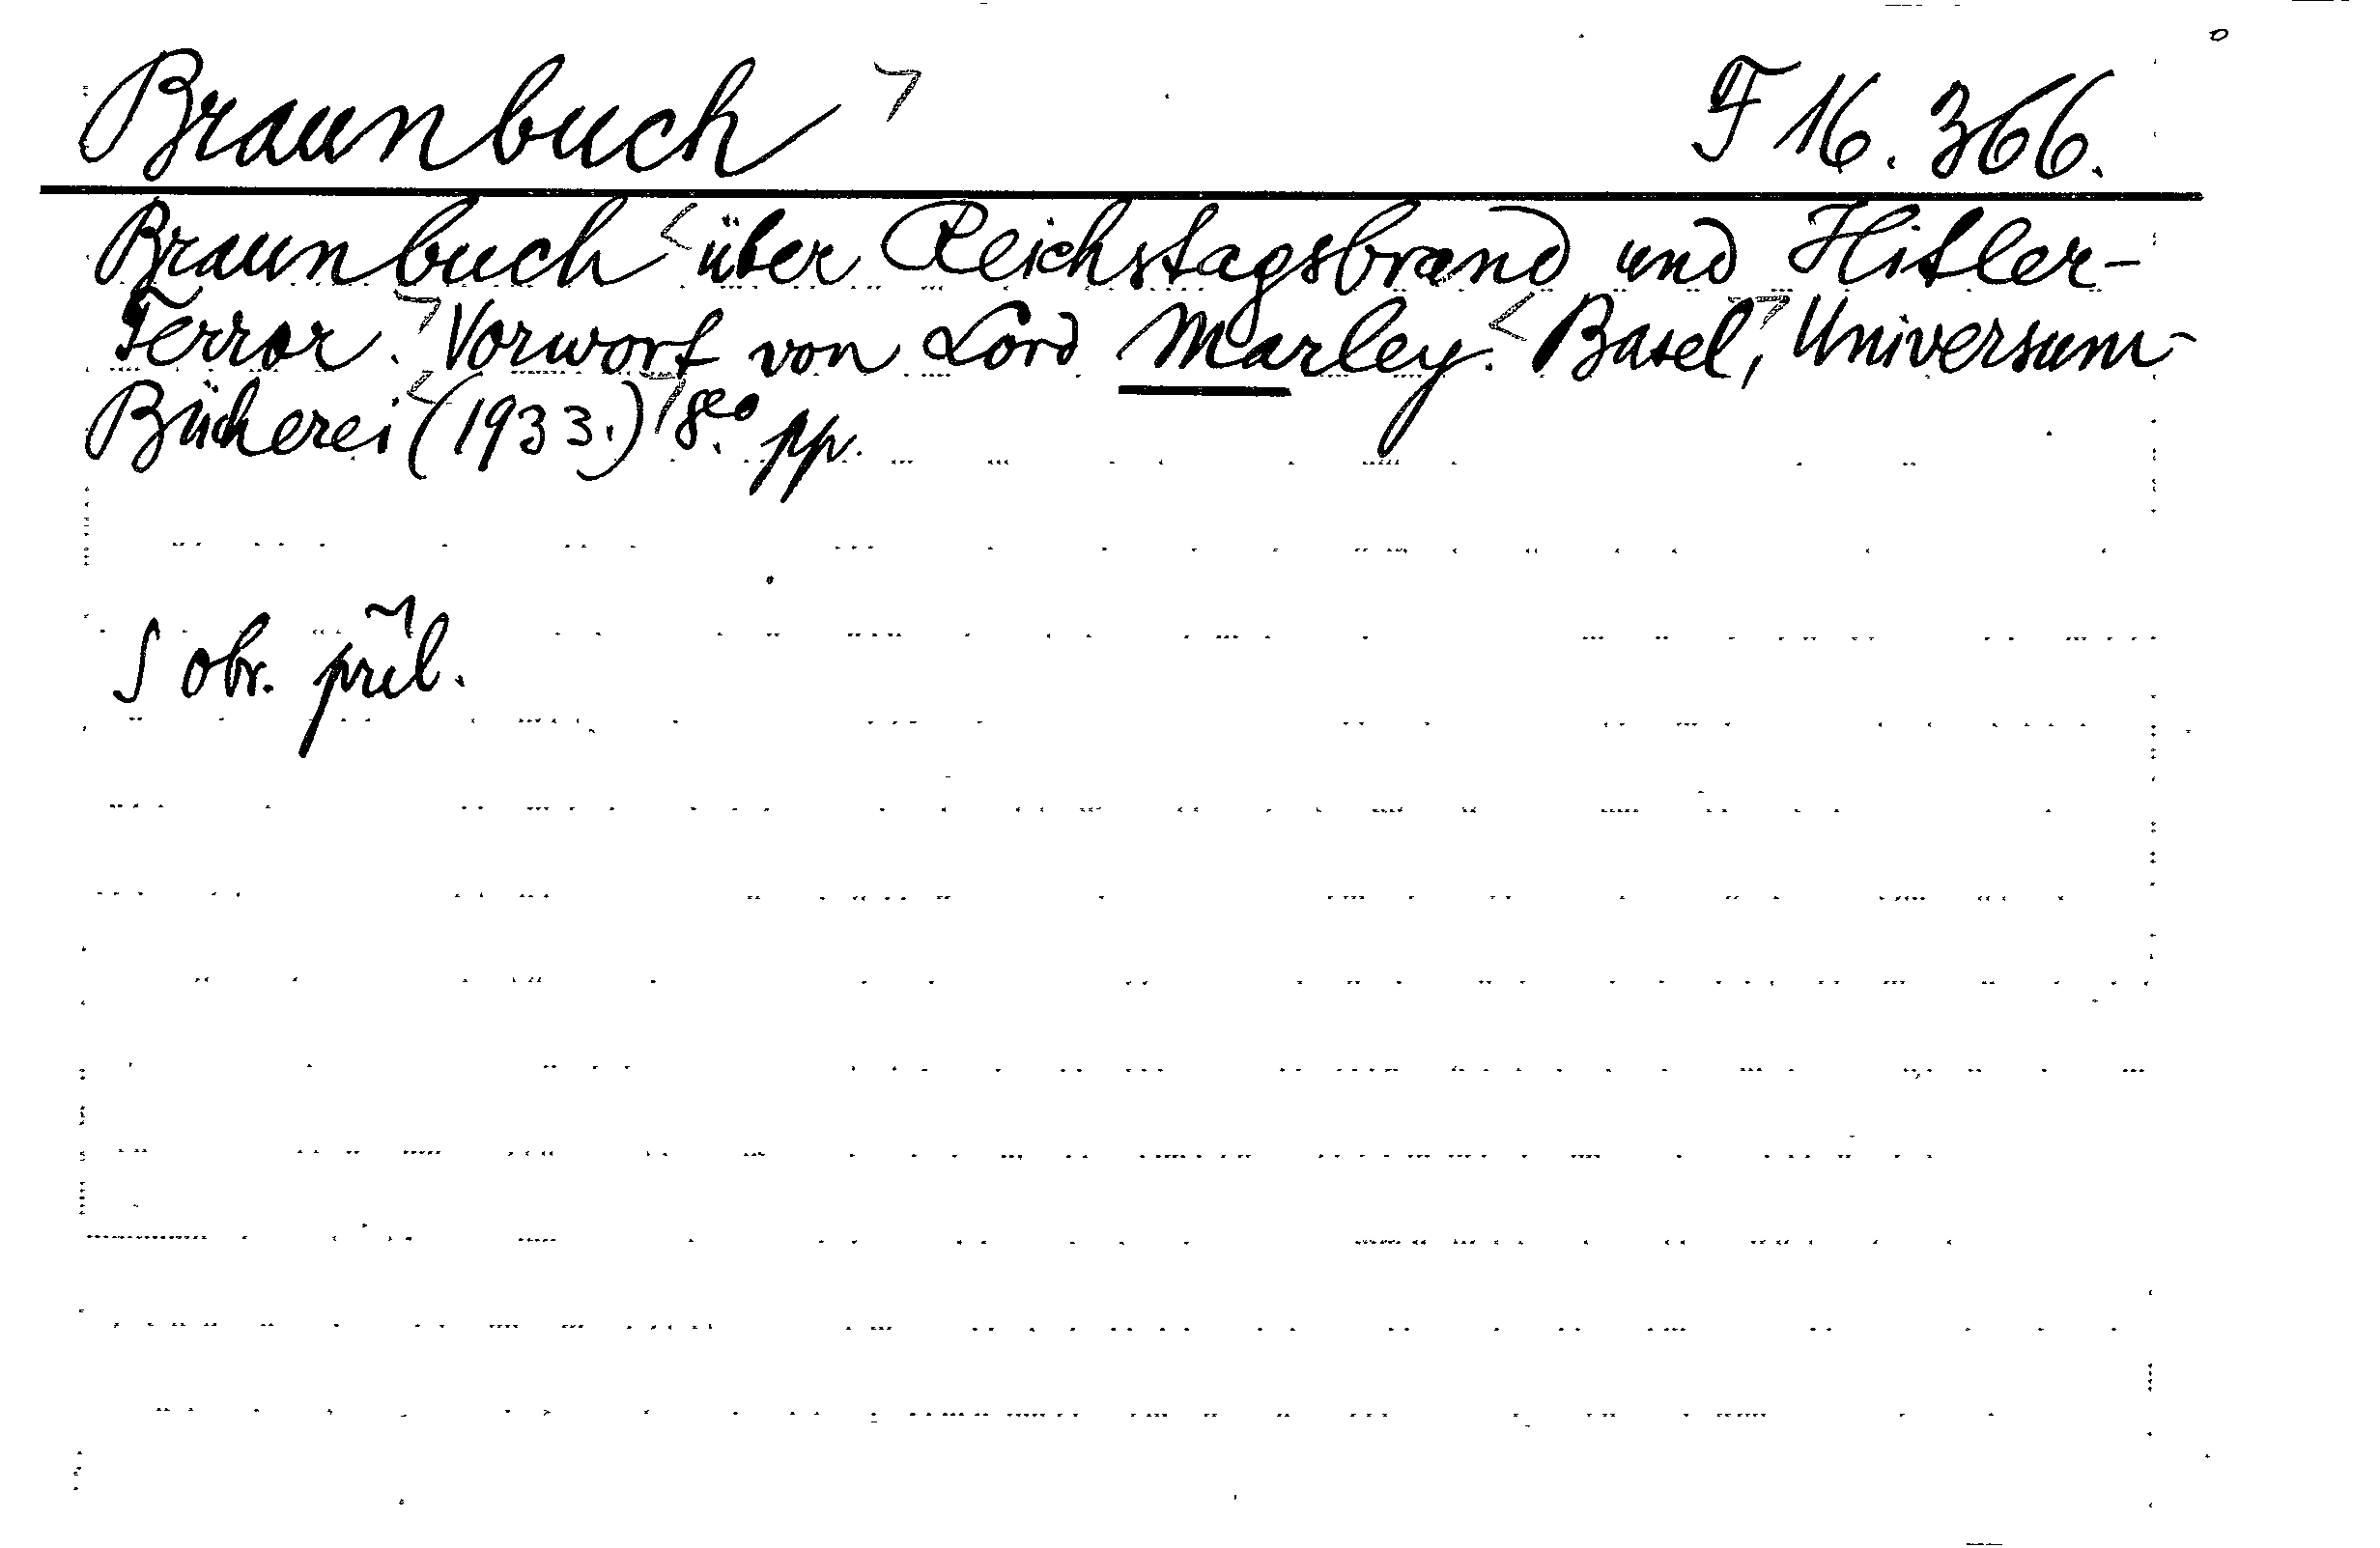 Braunbuch F 16.366.
Braunbuch über Reichstagsbrand und Hitler-
Terror. Vorwort von Lord Marley. Basel, Universum-
Bücherei (1933.) 8eo. pp.
S obr. příl.